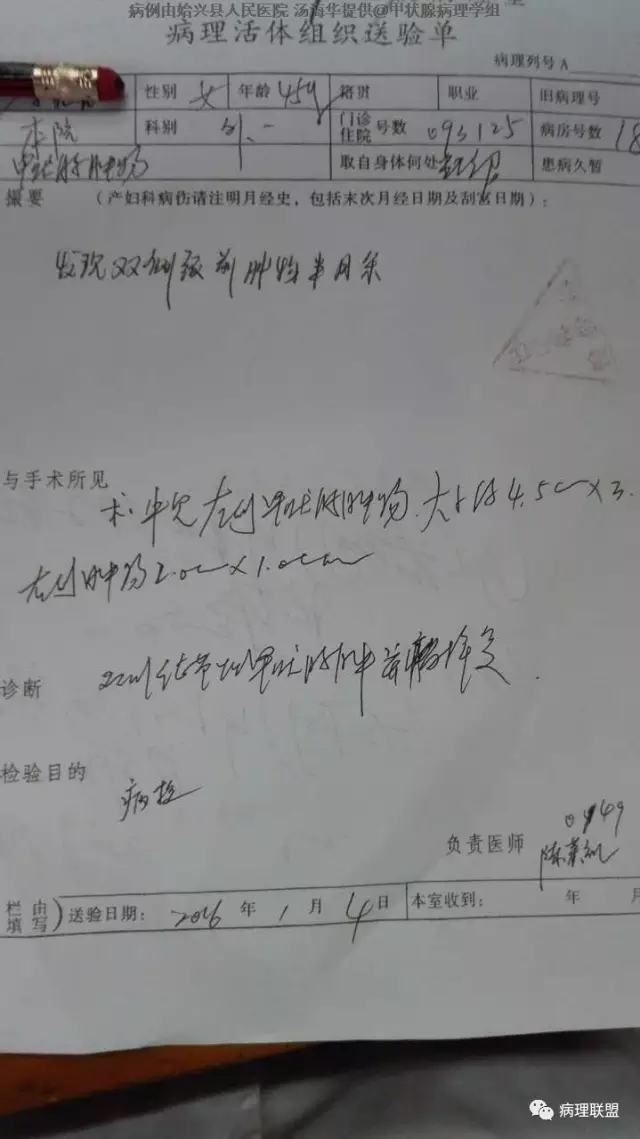 病例由始兴县人民医院 汤海华提供@甲状腺病理学组
病理活体组织送验单
病理列号A
性别 女 年龄 45岁 籍贯 职业 旧病理号
本院 科别 外.一 门诊住院 号数 093125 病房号数 18
甲状腺肿物 取自身体何处 患病久暂
摘要 (产妇科病伤请注明月经史，包括末次月经日期及刮宫日期)：
发现双侧颈前肿物半月余
与手术所见
术中见左侧甲状腺肿物.大小约4.5cm×3.
左侧肿物2.0cm×1.0cm
诊断 双侧结节性甲状腺肿
检验目的
病检
负责医师
栏由填写) 送验日期： 2016 年 1 月 4 日 本室收到： 年 月
病理联盟